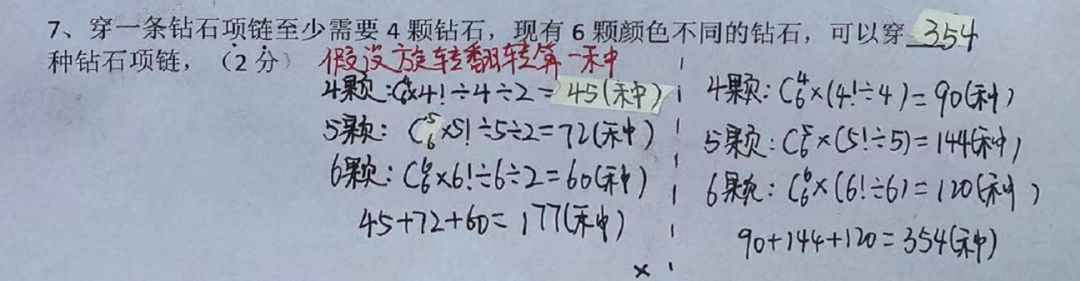 7、穿一条钻石项链至少需要 4 颗钻石，现有 6 颗颜色不同的钻石，可以穿 354
种钻石项链，（2 分） 假设旋转翻转算一种
4颗:C₆⁴×4!÷4÷2=45(种)
5颗: C₆⁵×5!÷5÷2=72(种)
6颗: C₆⁶×6!÷6÷2=60(种)
45+72+60=177(种)
×
4颗: C₆⁴×(4!÷4)=90(种)
5颗: C₆⁵×(5!÷5)=144(种)
6颗: C₆⁶×(6!÷6)=120(种)
90+144+120=354(种)